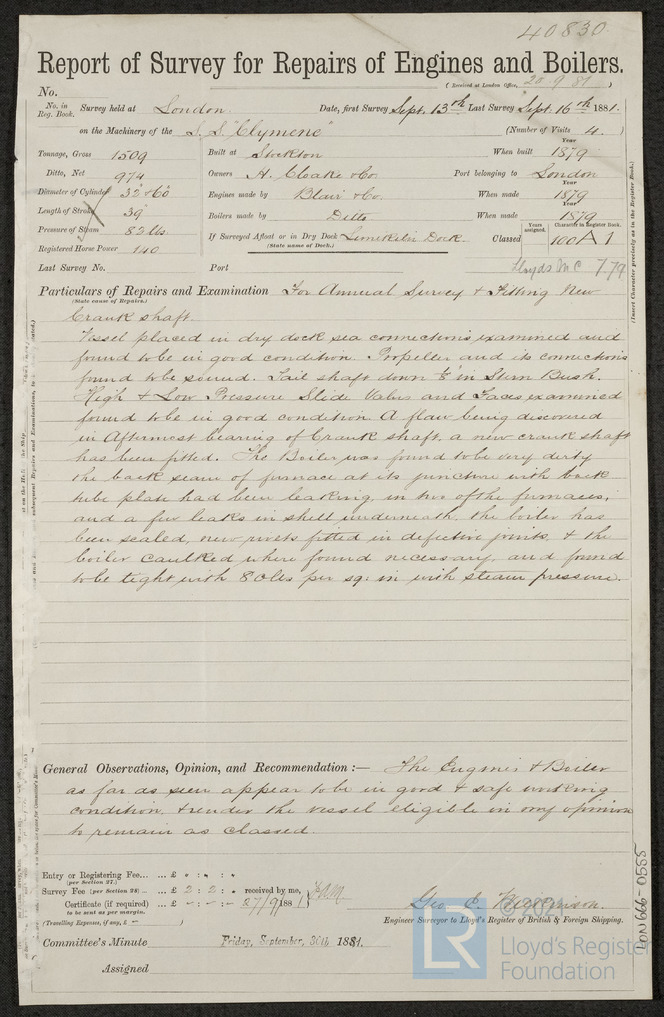 40830
Report of Survey for Repairs of Engines and Boilers.
(Received at London Office, 20.9.81)
No.
No. in Reg. Book. Survey held at London. Date, first Survey Sept. 13th Last Survey Sept. 16th 1881.
on the Machinery of the S.S. "Clymene" (Number of Visits 4.)
Tonnage, Gross 1509 Built at Stockton When built Year 1879
Ditto, Net 974 Owners H. Coake & Co. Port belonging to London
Diameter of Cylinder 32" & 60" Engines made by Blair & Co. When made Year 1879
Length of Stroke 39" Boilers made by Ditto When made Year 1879
Pressure of Steam 82 lbs If Surveyed Afloat or in Dry Dock Limekiln Dock. Classed Years assigned. Character in Register Book. 100 A 1
(State name of Dock.)
Registered Horse Power 140
Last Survey No. Port Lloyds M C 7.79
Particulars of Repairs and Examination For Annual Survey & Fitting New
(State cause of Repairs.)
Crank shaft.
Vessel placed in dry dock sea connections examined and
found to be in good condition. Propeller and its connections
found to be sound. Tail shaft down 1/8" in Stern Bush.
High & Low Pressure Slide Valves and Faces examined
found to be in good condition. A flaw being discovered
in Aftermost bearing of Crank shaft, a new crank shaft
has been fitted. The Boiler was found to be very dirty
the back seam of furnace at its junction with back
tube plate had been leaking, in two of the furnaces,
and a few leaks in shell underneath, the boiler has
been scaled, new rivets fitted in defective joints, & the
boiler caulked where found necessary, and found
to be tight with 80 lbs per sq: in with steam pressure.
General Observations, Opinion, and Recommendation :— The Engines & Boiler
as far as seen appear to be in good & safe working
condition, & render the vessel eligible in my opinion
to remain as classed.
Entry or Registering Fee... ... £ " : " : "
(per Section 27.)
Survey Fee (per Section 28) ... £ 2 : 2 : " received by me,
Certificate (if required) ... £ - : - : - 27/9/1881
to be sent as per margin.
(Travelling Expense, if any, £ - )
Geo. E.
Engineer Surveyor to Lloyd's Register of British & Foreign Shipping.
Committee's Minute Friday, September, 30th 1881.
Assigned
(Insert Character precisely as in the Register Book.)
subsequent Repairs and Examinations, to
LON666-0555
© 2021
LR
Lloyd's Register
Foundation